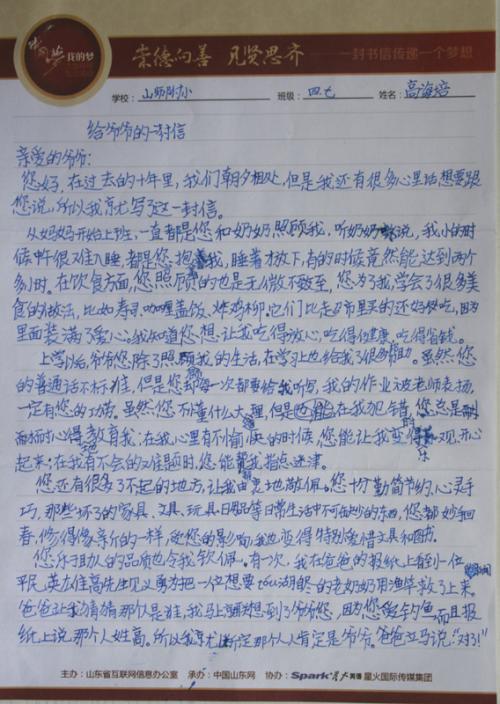 我的梦
崇德向善 见贤思齐 一封书信传递一个梦想
学校：山师附小 班级：四七 姓名：高海培
给爷爷的一封信
亲爱的爷爷：
您好，在过去的十年里，我们朝夕相处，但是我还有很多心里话想要跟
您说，所以我就写了这一封信。
从妈妈开始上班，一直都是您和奶奶照顾我，听奶奶说，我小的时
候午很难入睡，都是您抱着我，睡着才放下，有的时候竟然能达到两个
多小时。在饮食方面，您照顾的也是无微不致，您为了我，学会了很多美
食的做法，比如寿司、咖喱盖饭、炸鸡柳。它们比起市里买的还好吃，因为
里面装满了爱心；我知道您想让我吃得放心，吃得健康，吃得省钱。
上学以后，爷爷您除了照顾我的生活，在学习上也给了我很多帮助。虽然您
的普通话不标准，但是您却每一次都要给我听写，我的作业被老师表扬，
一定有您的功劳。虽然您不懂什么大理，但是在我犯错时，您总是耐
心得教育我；在我心里有不愉快的时候，您能让我变得乐观、开心
起来；在我有不会的难题时，您能帮我指点迷津。
您还有很多了不起的地方，让我由衷地敬佩。您十分勤简节约、心灵手
巧，那些坏了的家具、文具、玩具、日用品等日常生活中不可缺少的东西，您都妙手回
春，修得像新的一样，受您的影响，我也变得特别爱惜文具和图书。
您乐于助人的品质也令我钦佩。有一次，我在爸爸的报纸上看到一位
平民英雄高先生见义勇为把一位想要tou湖自尽的老奶奶用渔竿救了上来。
爸爸让我猜猜那个是谁，我马上联想到了爷爷您，因为您爱钓鱼而且报
纸上说那个人姓高。所以我就断定那个人肯定是爷爷。爸爸立马说：“对了！”
主办：山东省互联网信息办公室 承办：中国山东网 协办：Spark 星火英语 星火国际传媒集团